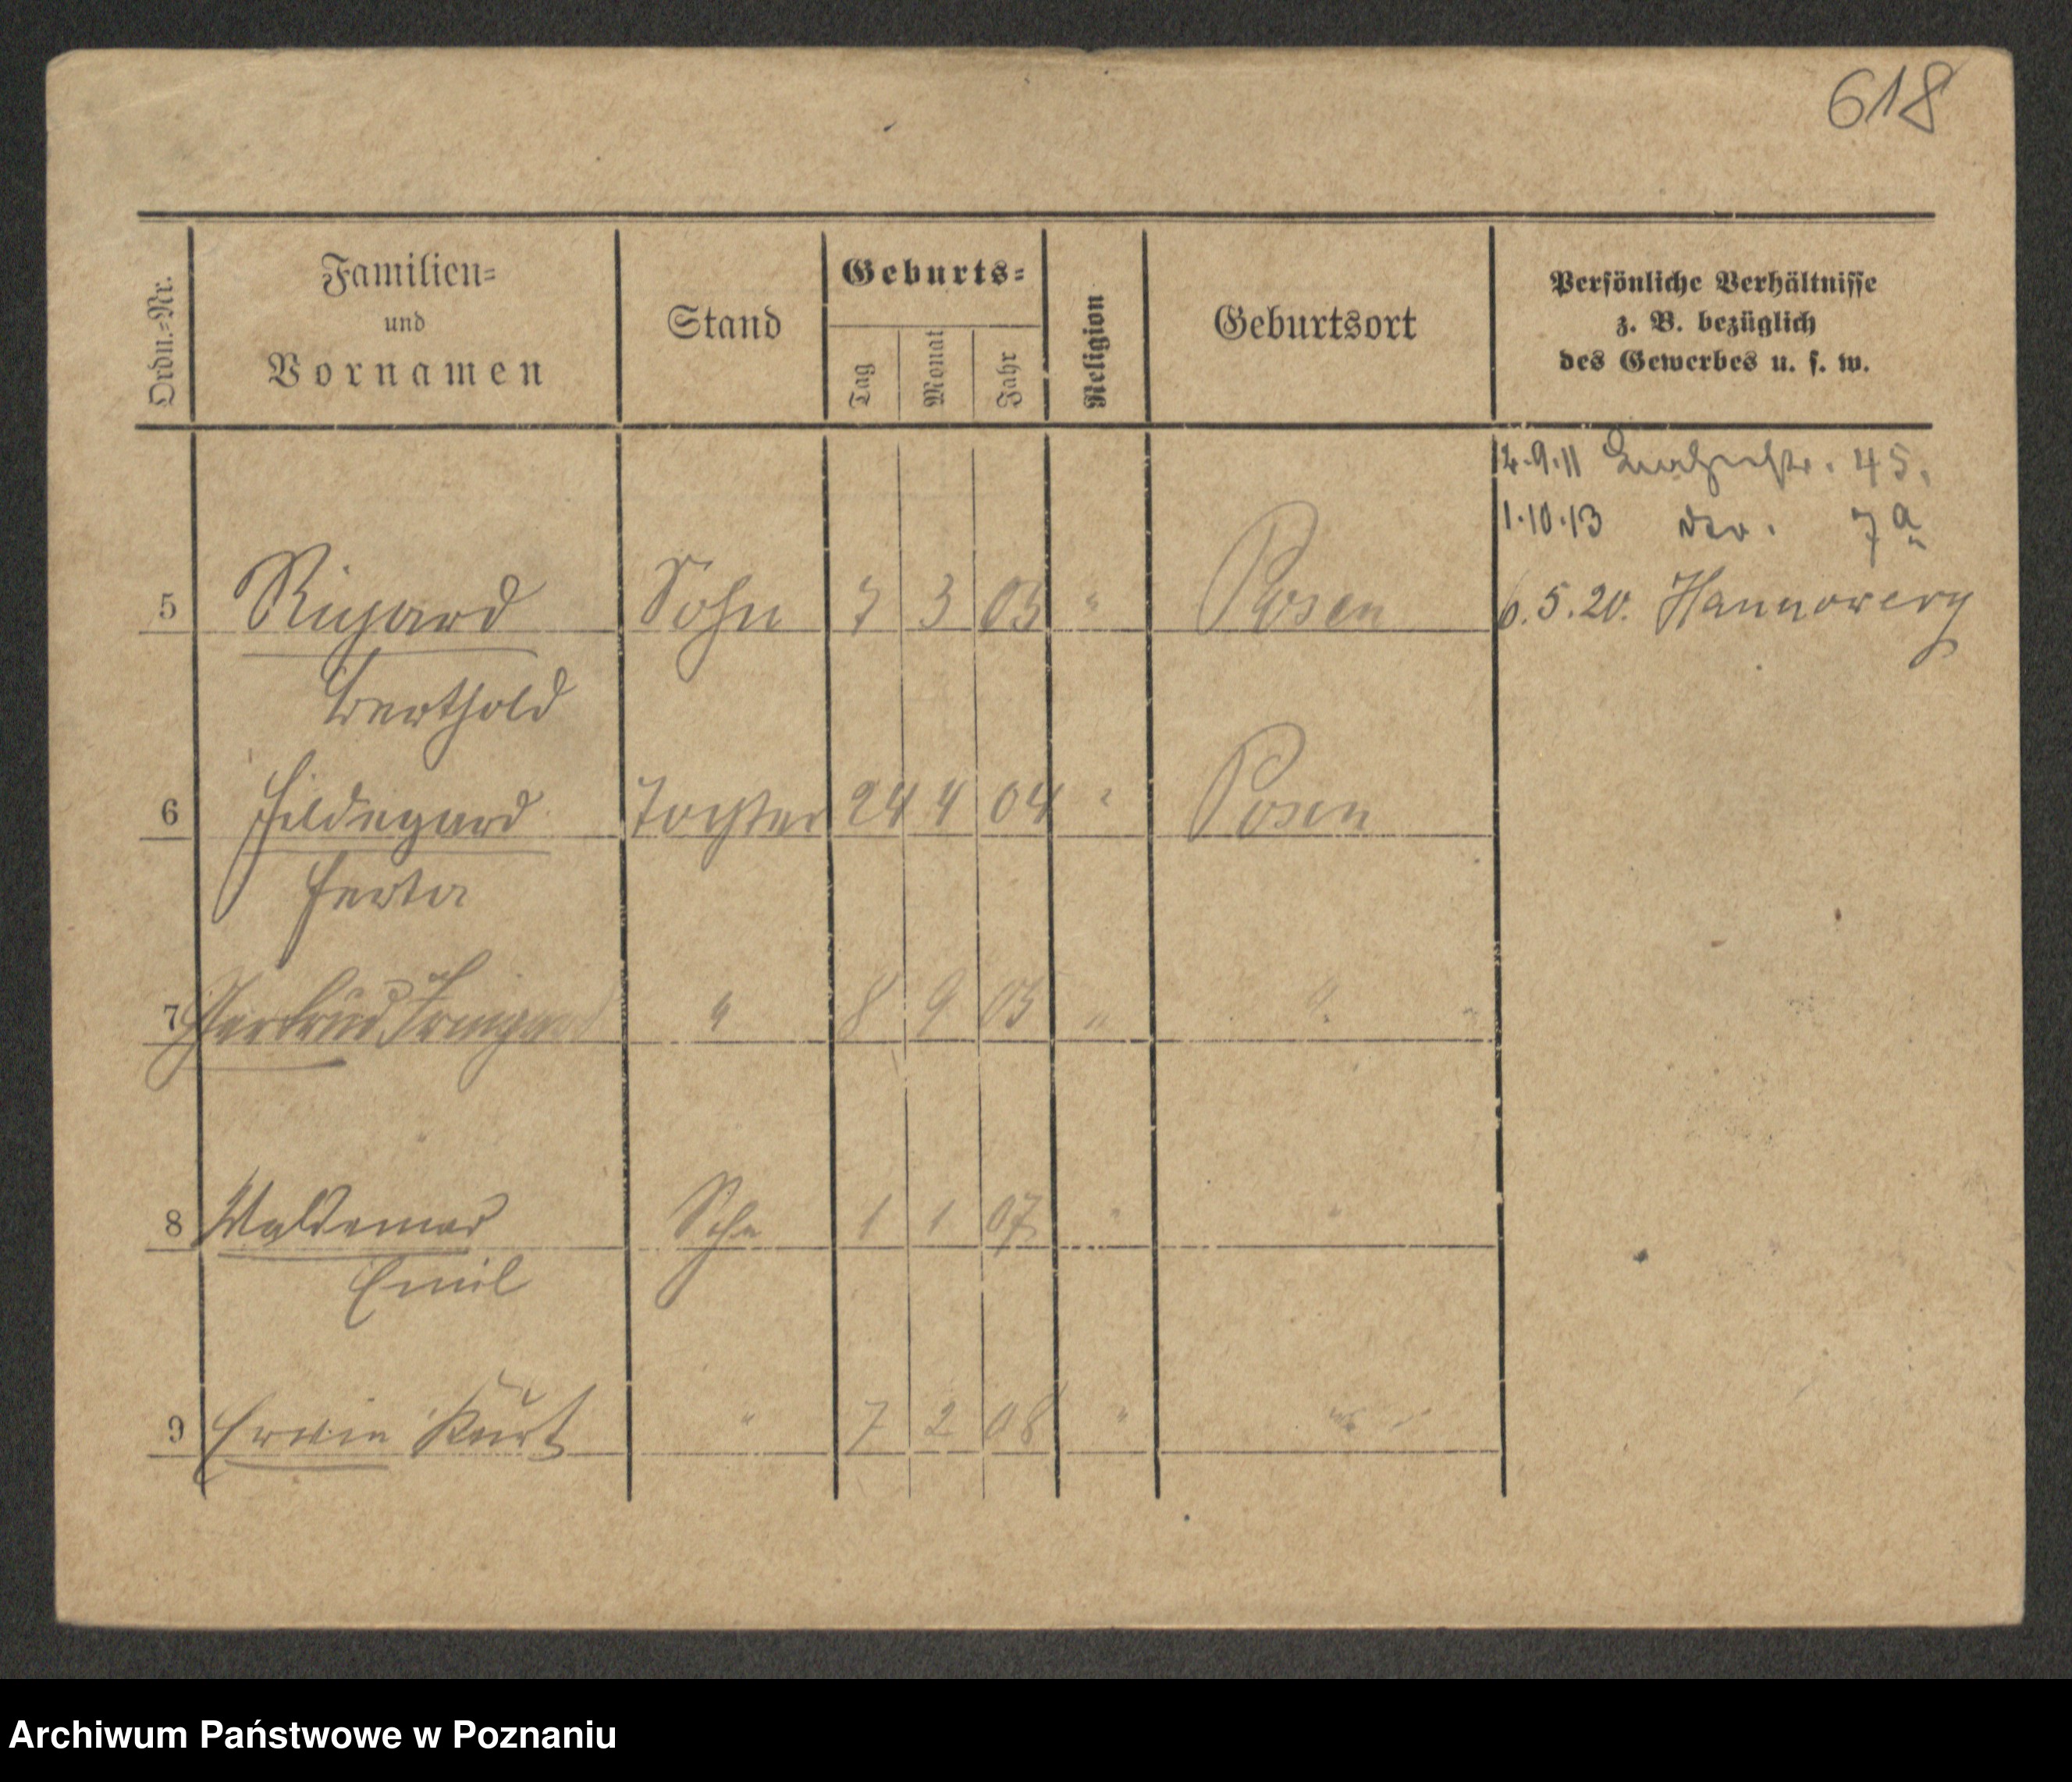 618
Ordn.=Nr.
Familien=
und
Vornamen
Stand
Geburts=
Tag
Monat
Jahr
Religion
Geburtsort
Persönliche Verhältnisse
z. B. bezüglich
des Gewerbes u. s. w.
12.9.11 45.
1.10.13 7a
5 Richard Sohn 7 3 03 " Posen 6.5.20. Hannover
Berthold
6 Hildegard Tochter 24 4 04 " Posen
Herta
7 Gertrud Irmgard " 8 9 05 " "
8 Waldemar Sohn 1 1 07 " "
Emil
9 Erwin Kurt " 7 2 08 " "
Archiwum Państwowe w Poznaniu